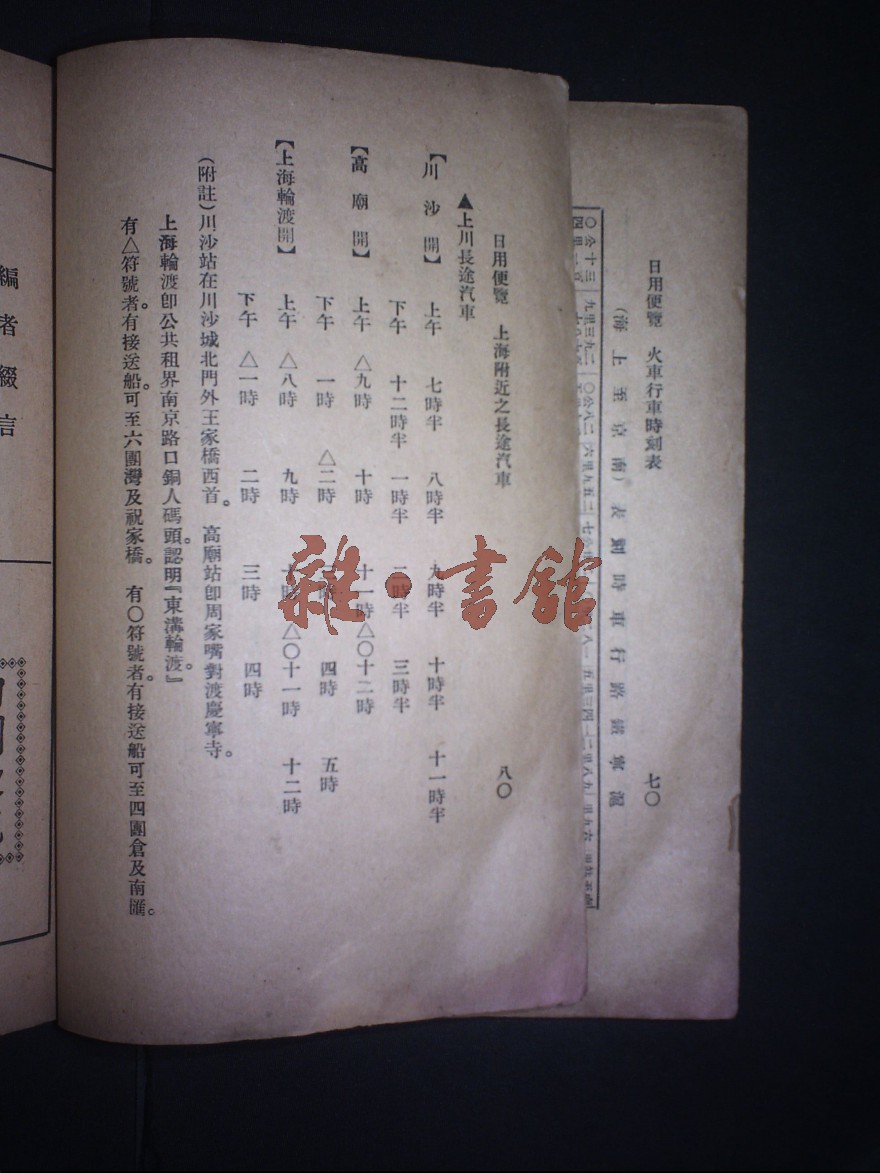 日用便覽　火車行車時刻表　七〇
(海上至京南)表刻時車行路鐵寧滬
日用便覽　上海附近之長途汽車　八〇
▲上川長途汽車
【川沙開】　上午　七時半　八時半　九時半　十時半　十一時半
下午　十二時半　一時半　二時半　三時半
【高廟開】　上午　△九時　十時　十一時　△〇十二時
下午　一時　△二時　三時　四時　五時
【上海輪渡開】　上午　△八時　九時　十時　△〇十一時　十二時
下午　△一時　二時　三時　四時
(附註)川沙站在川沙城北門外王家橋西首。高廟站卽周家嘴對渡慶寧寺。
上海輪渡卽公共租界南京路口銅人碼頭。認明『東溝輪渡。』
有△符號者。有接送船可至六團灣及祝家橋。有〇符號者。有接送船可至四團倉及南匯。
編者綴言
雜·書館